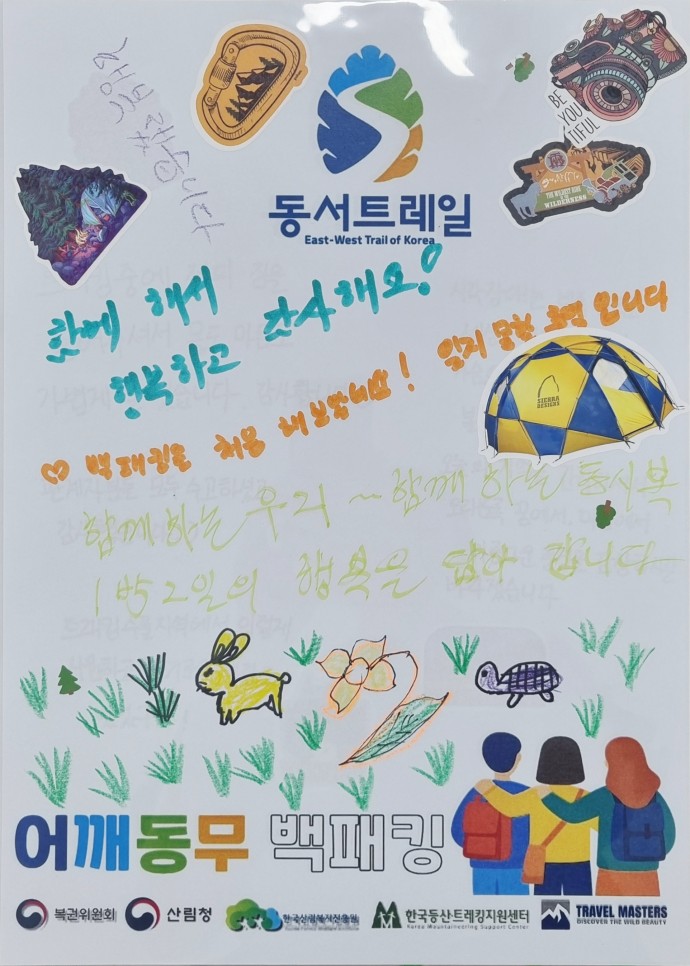 행복했습니다
BE
YOU
TIFUL
THE WILDEST RIDE
IN THE
WILDERNESS
동서트레일
East-West Trail of Korea
함께 해서
행복하고 감사해요!
♡ 백패킹은 처음 해보았네요! 잊지 못할 호텔입니다
SIERRA
DESIGNS
함께하는 우리 ~ 함께 하는 동시복
1박2일의 행복을 담아 갑니다
어깨동무 백패킹
복권위원회
산림청
한국산림복지진흥원
한국등산·트레킹지원센터
Korea Mountaineering Support Center
TRAVEL MASTERS
DISCOVER THE WILD BEAUTY